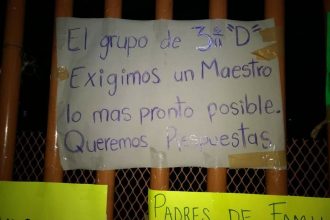 El grupo de 3º "D"
Exigimos un Maestro
lo mas pronto posible.
Queremos Respuestas
PADRES DE FAMI